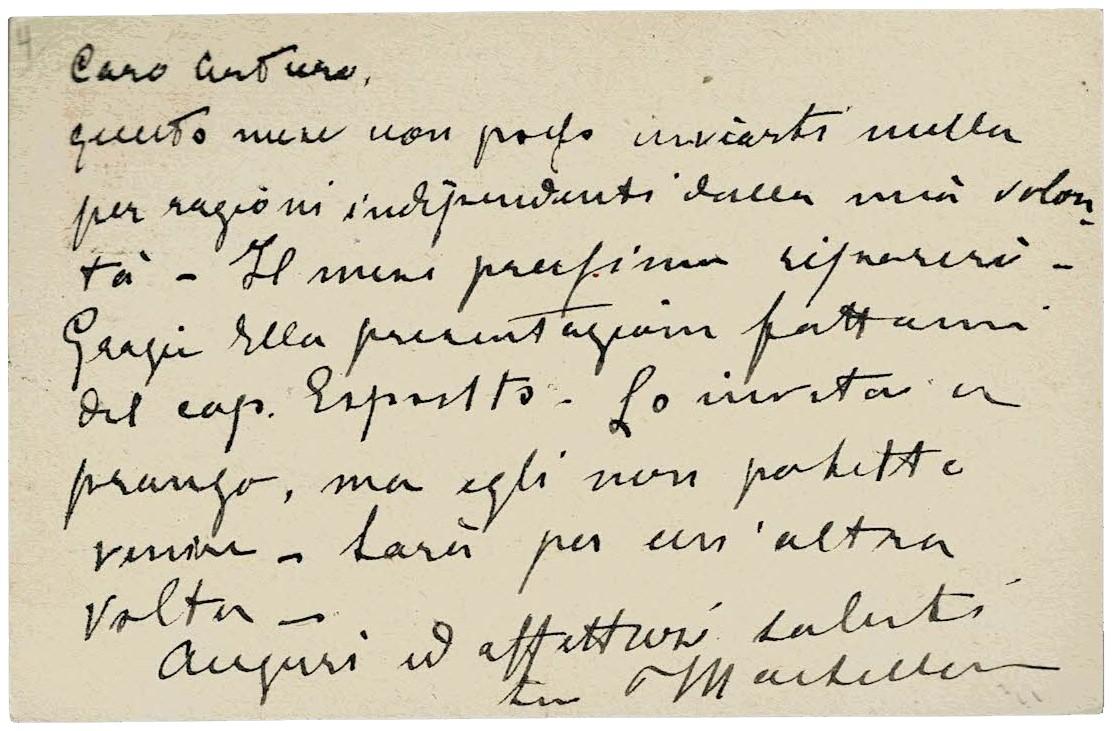 4
Caro Arturo,
questo mese non posso inviarti nulla
per ragioni indipendenti dalla mia volon-
tà - Il mese prossimo riparerò -
Grazie della presentazione fattami
del cap. Esposito - Lo invitai a
pranzo, ma egli non potette
venire - Sarà per un'altra
volta -
Auguri ed affettuosi saluti
tuo